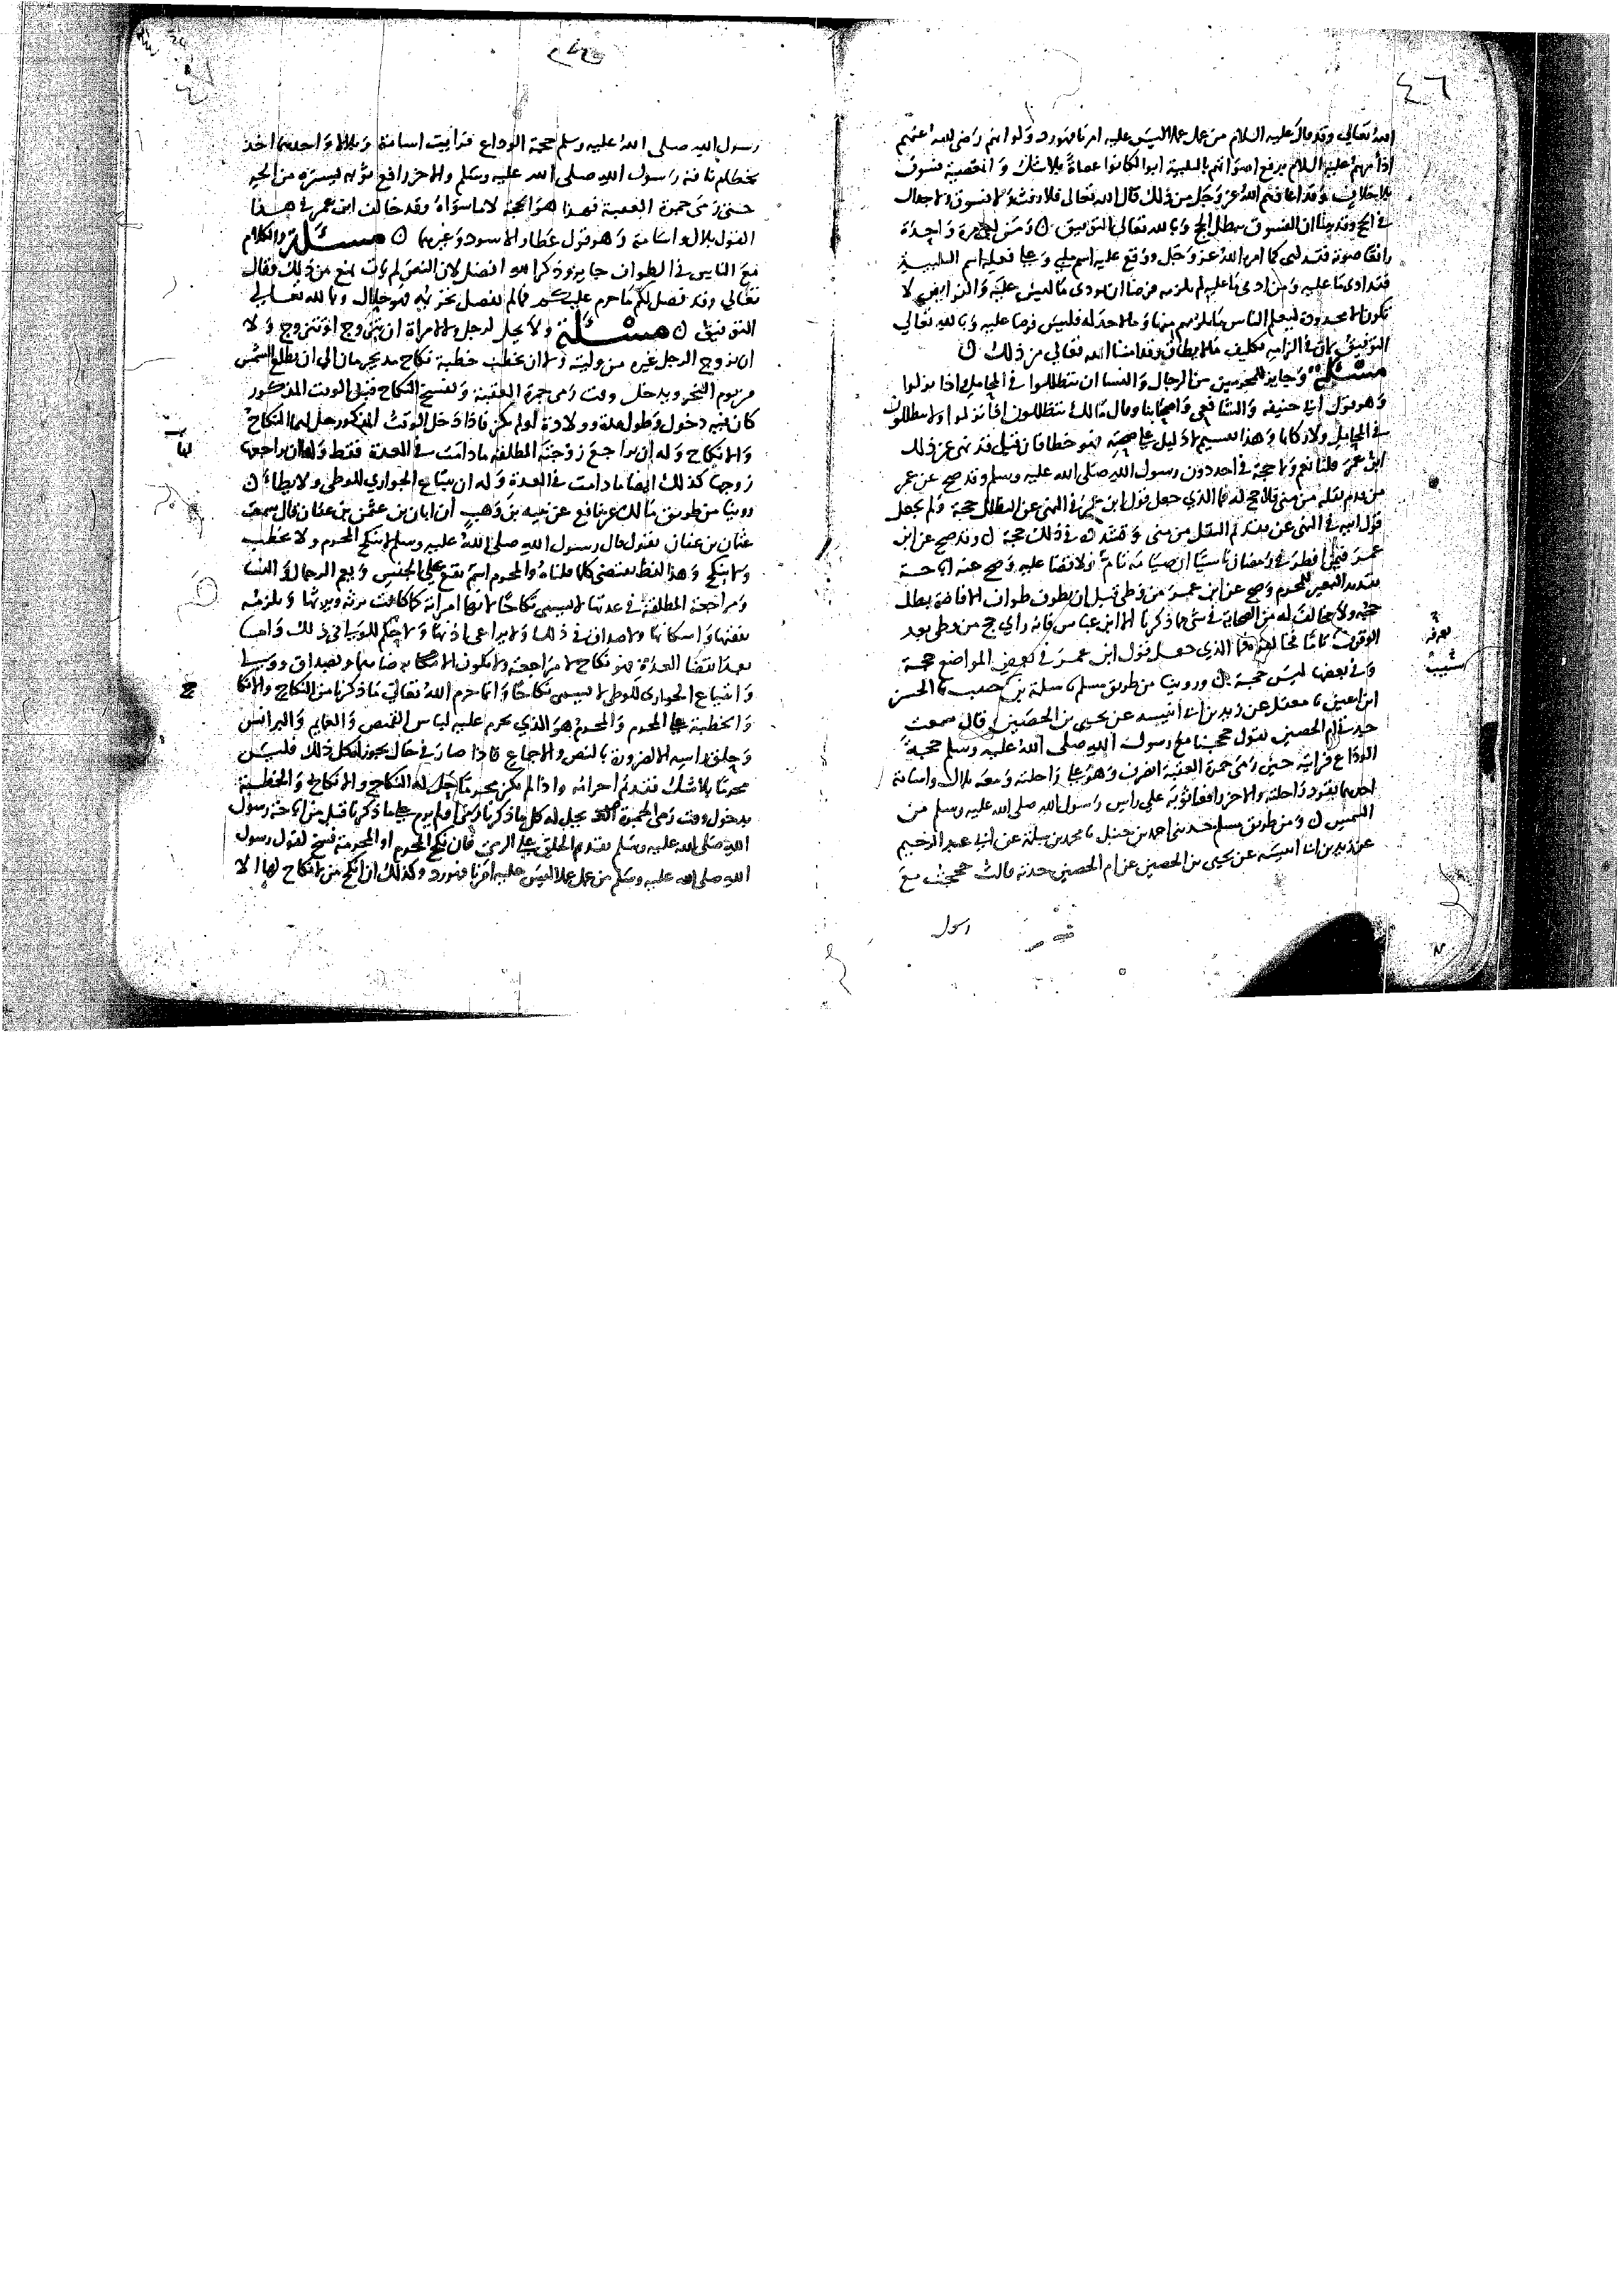 ٤٦
الله تعالى وقد قال عليه السلام من عمل عملا ليس عليه امرنا فهو رد ولو انهم رضي الله عنهم
اذ امرهم عليه السلام برفع اصواتهم بالتلبية ابوا لكانوا عصاة بلا شك والمعصية فسوق
بلا خلاف وقد اعاذهم الله عز وجل من ذلك قال الله تعالى فلا رفث ولا فسوق ولا جدال
في الحج وقد بينا ان الفسوق يبطل الحج وبالله تعالى التوفيق ن ومن لبى مرة واحدة
رافعا صوته فقد لبى كما امره الله عز وجل ووقع عليه اسم ملبي وعلى فعله اسم التلبية
فقد ادى ما عليه ومن ادى ما عليه لم يلزمه فرضا ان يودي ما ليس عليه والفرايض لا
تكون الا محدودة ليعلم الناس ما يلزمهم منها وما لا حد له فليس فرضا عليه وبالله تعالى
التوفيق لان في الزامه تكليف ما لا يطاق وقد امننا الله تعالى من ذلك ن
مسئلة وجايز للمحرمين من الرجال والنسا ان يتظللوا في المحامل واذا نزلوا
وهو قول ابي حنيفه والشافعي واصحابنا وقال مالك يتظللون اذا نزلوا ولا يتظللون
في المحامل ولا ركابا وهذا تقسيم لا دليل على صحته فهو خطا فان قيل قد نهى عن ذلك
ابن عمر قلنا نعم ولا حجة في احد دون رسول الله صلى الله عليه وسلم وقد صح عن عمر
من قدم ثقله من منى فلا حج له فما الذي جعل قول ابن عمر في النهي عن التظلل حجة ولم يجعل
قول ابيه في النهي عن تقديم الثقل من منى حجة ن وقد صح عن ابن
عمر فيمن افطر في رمضان ناسيا ان صيامه تام ولا قضا عليه وصح عنه اباحة
تقريد البعير للمحرم وصح عن ابن عمر من وطي قبل ان يطوف طواف الافاضة بطل
حجه ولا مخالف له من الصحابة في شي مما ذكرنا الا ابن عباس فانه راى حج من وطي بعد
الوقوف تاما فما الذي جعل قول ابن عمر في بعض المواضع حجة
بعرفة
وفي بعضها ليس حجة ن وروينا من طريق مسلم نا سلمة بن شبيب نا الحسن
شبيب
ابن اعين نا معقل عن زيد بن ابي انيسه عن يحيى بن الحصين قال سمعت
جدتي ام الحصين تقول حججنا مع رسول الله صلى الله عليه وسلم حجة
الوداع فرايته حين رمى جمرة العقبة انصرف وهو على راحلته ومعه بلال واسامة
احدهما يقود راحلته والاخر رافعا ثوبه على راس رسول الله صلى الله عليه وسلم من
الشمس ن ومن طريق مسلم حدثني احمد بن حنبل نا محمد بن سلمة عن ابي عبد الرحيم
عن زيد بن ابي انيسه عن يحيى بن الحصين عن ام الحصين جدته قالت حججت مع
رسول
رسول الله صلى الله عليه وسلم حجة الوداع فرايت اسامة وبلالا واحدهما اخذ
بخطام ناقة رسول الله صلى الله عليه وسلم والاخر رافع ثوبه يستره من الحر
حتى رمى جمرة العقبة فهذا هو الحجة لا ما سواه وقد خالف ابن عمر في هذا
القول بلال واسامة وهو قول عطا والاسود وغيرهما ن مسئلة والكلام
مع الناس في الطواف جايز وذكر الله افضل لان النص لم يات بمنع من ذلك وقال
تعالى وقد فصل لكم ما حرم عليكم فما لم يفصل تحريمه فهو حلال وبالله تعالى
التوفيق ن مسئلة ولا يحل لرجل ولا لامراة ان يتزوج او تتزوج ولا
ان يزوج الرجل غيره من وليته ولا ان يخطب خطبة نكاح مذ يحرمان الى ان تطلع الشمس
من يوم النحر ويدخل وقت رمي جمرة العقبة ويفسخ النكاح قبل الوقت المذكور
كان فيه دخول وطول مدة وولادة او لم يكن فاذا دخل الوقت المذكور حل لهما النكاح
والانكاح وله ان يراجع زوجته المطلقة ما دامت في العدة فقط ولها ان يراجعها
زوجها كذلك ايضا ما دامت في العدة وله ان يبتاع الجواري للوطي ولا يطا ن
روينا من طريق مالك عن نافع عن نبيه بن وهب ان ابان بن عثمن بن عفان قال سمعت
عثمان بن عفان يقول قال رسول الله صلى الله عليه وسلم لا ينكح المحرم ولا يخطب
ولا ينكح وهذا لفظ يقتضي كلما قلناه والمحرم اسم يقع على الجنس ويعم الرجال والنسا
ومراجعة المطلقة في عدتها لا يسمى نكاحا لانها امراته كما كانت ترثه ويرثها وتلزمه
نفقتها واسكانها ولا صداق في ذلك ولا يراعى اذنها ولا حكم للولي في ذلك واما
بعد انقضا العدة فهو نكاح لا مراجعة ولا يكون الا برضاهما وبصداق وولي
وابتياع الجواري للوطي لا يسمى نكاحا وانما حرم الله تعالى ما ذكرنا من النكاح والانكاح
والخطبة على المحرم والمحرم هو الذي يحرم عليه لباس القمص والعمايم والبرانس
وحلق راسه الا لضرورة بالنص والاجماع فاذا صار في حال يجوز له كل ذلك فليس
محرما بلا شك فقد تم احرامه واذا لم يكن محرما حل له النكاح والانكاح والخطبة
بدخول وقت رمي الجمرة يحل له كل ما ذكرنا رمى او لم يرم على ما ذكرنا قبل من اباحة رسول
الله صلى الله عليه وسلم تقديم الحلق على الرمي فان نكح المحرم او المحرمة فسخ لقول رسول
الله صلى الله عليه وسلم من عمل عملا ليس عليه امرنا فهو رد وكذلك ان انكح من لا نكاح لها الا